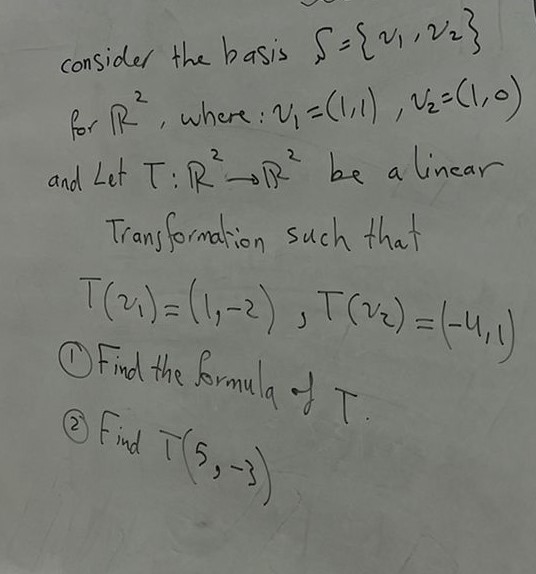 consider the basis S={v₁, v₂}
for ℝ², where: v₁=(1,1), v₂=(1,0)
and Let T:ℝ²→ℝ² be a linear
Transformation such that
T(v₁)=(1,-2), T(v₂)=(-4,1)
① Find the formula of T.
② Find T(5,-3)